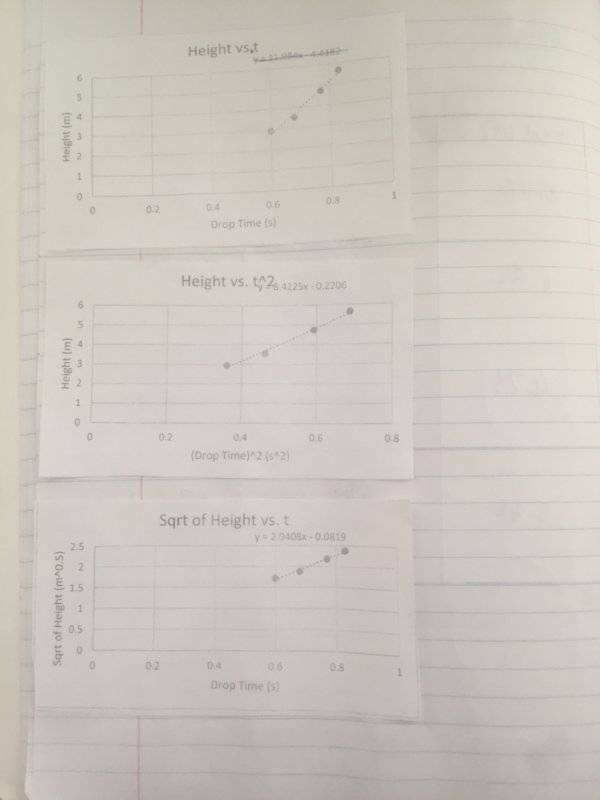 Height vs.t
6
5
4
3
2
1
0
Height (m)
0 0.2 0.4 0.6 0.8 1
Drop Time (s)
Height vs. t^2
y = 8.4225x - 0.2206
6
5
4
3
2
1
0
Height (m)
0 0.2 0.4 0.6 0.8
(Drop Time)^2 (s^2)
Sqrt of Height vs. t
y = 2.9408x - 0.0819
2.5
2
1.5
1
0.5
0
Sqrt of Height (m^0.5)
0 0.2 0.4 0.6 0.8 1
Drop Time (s)